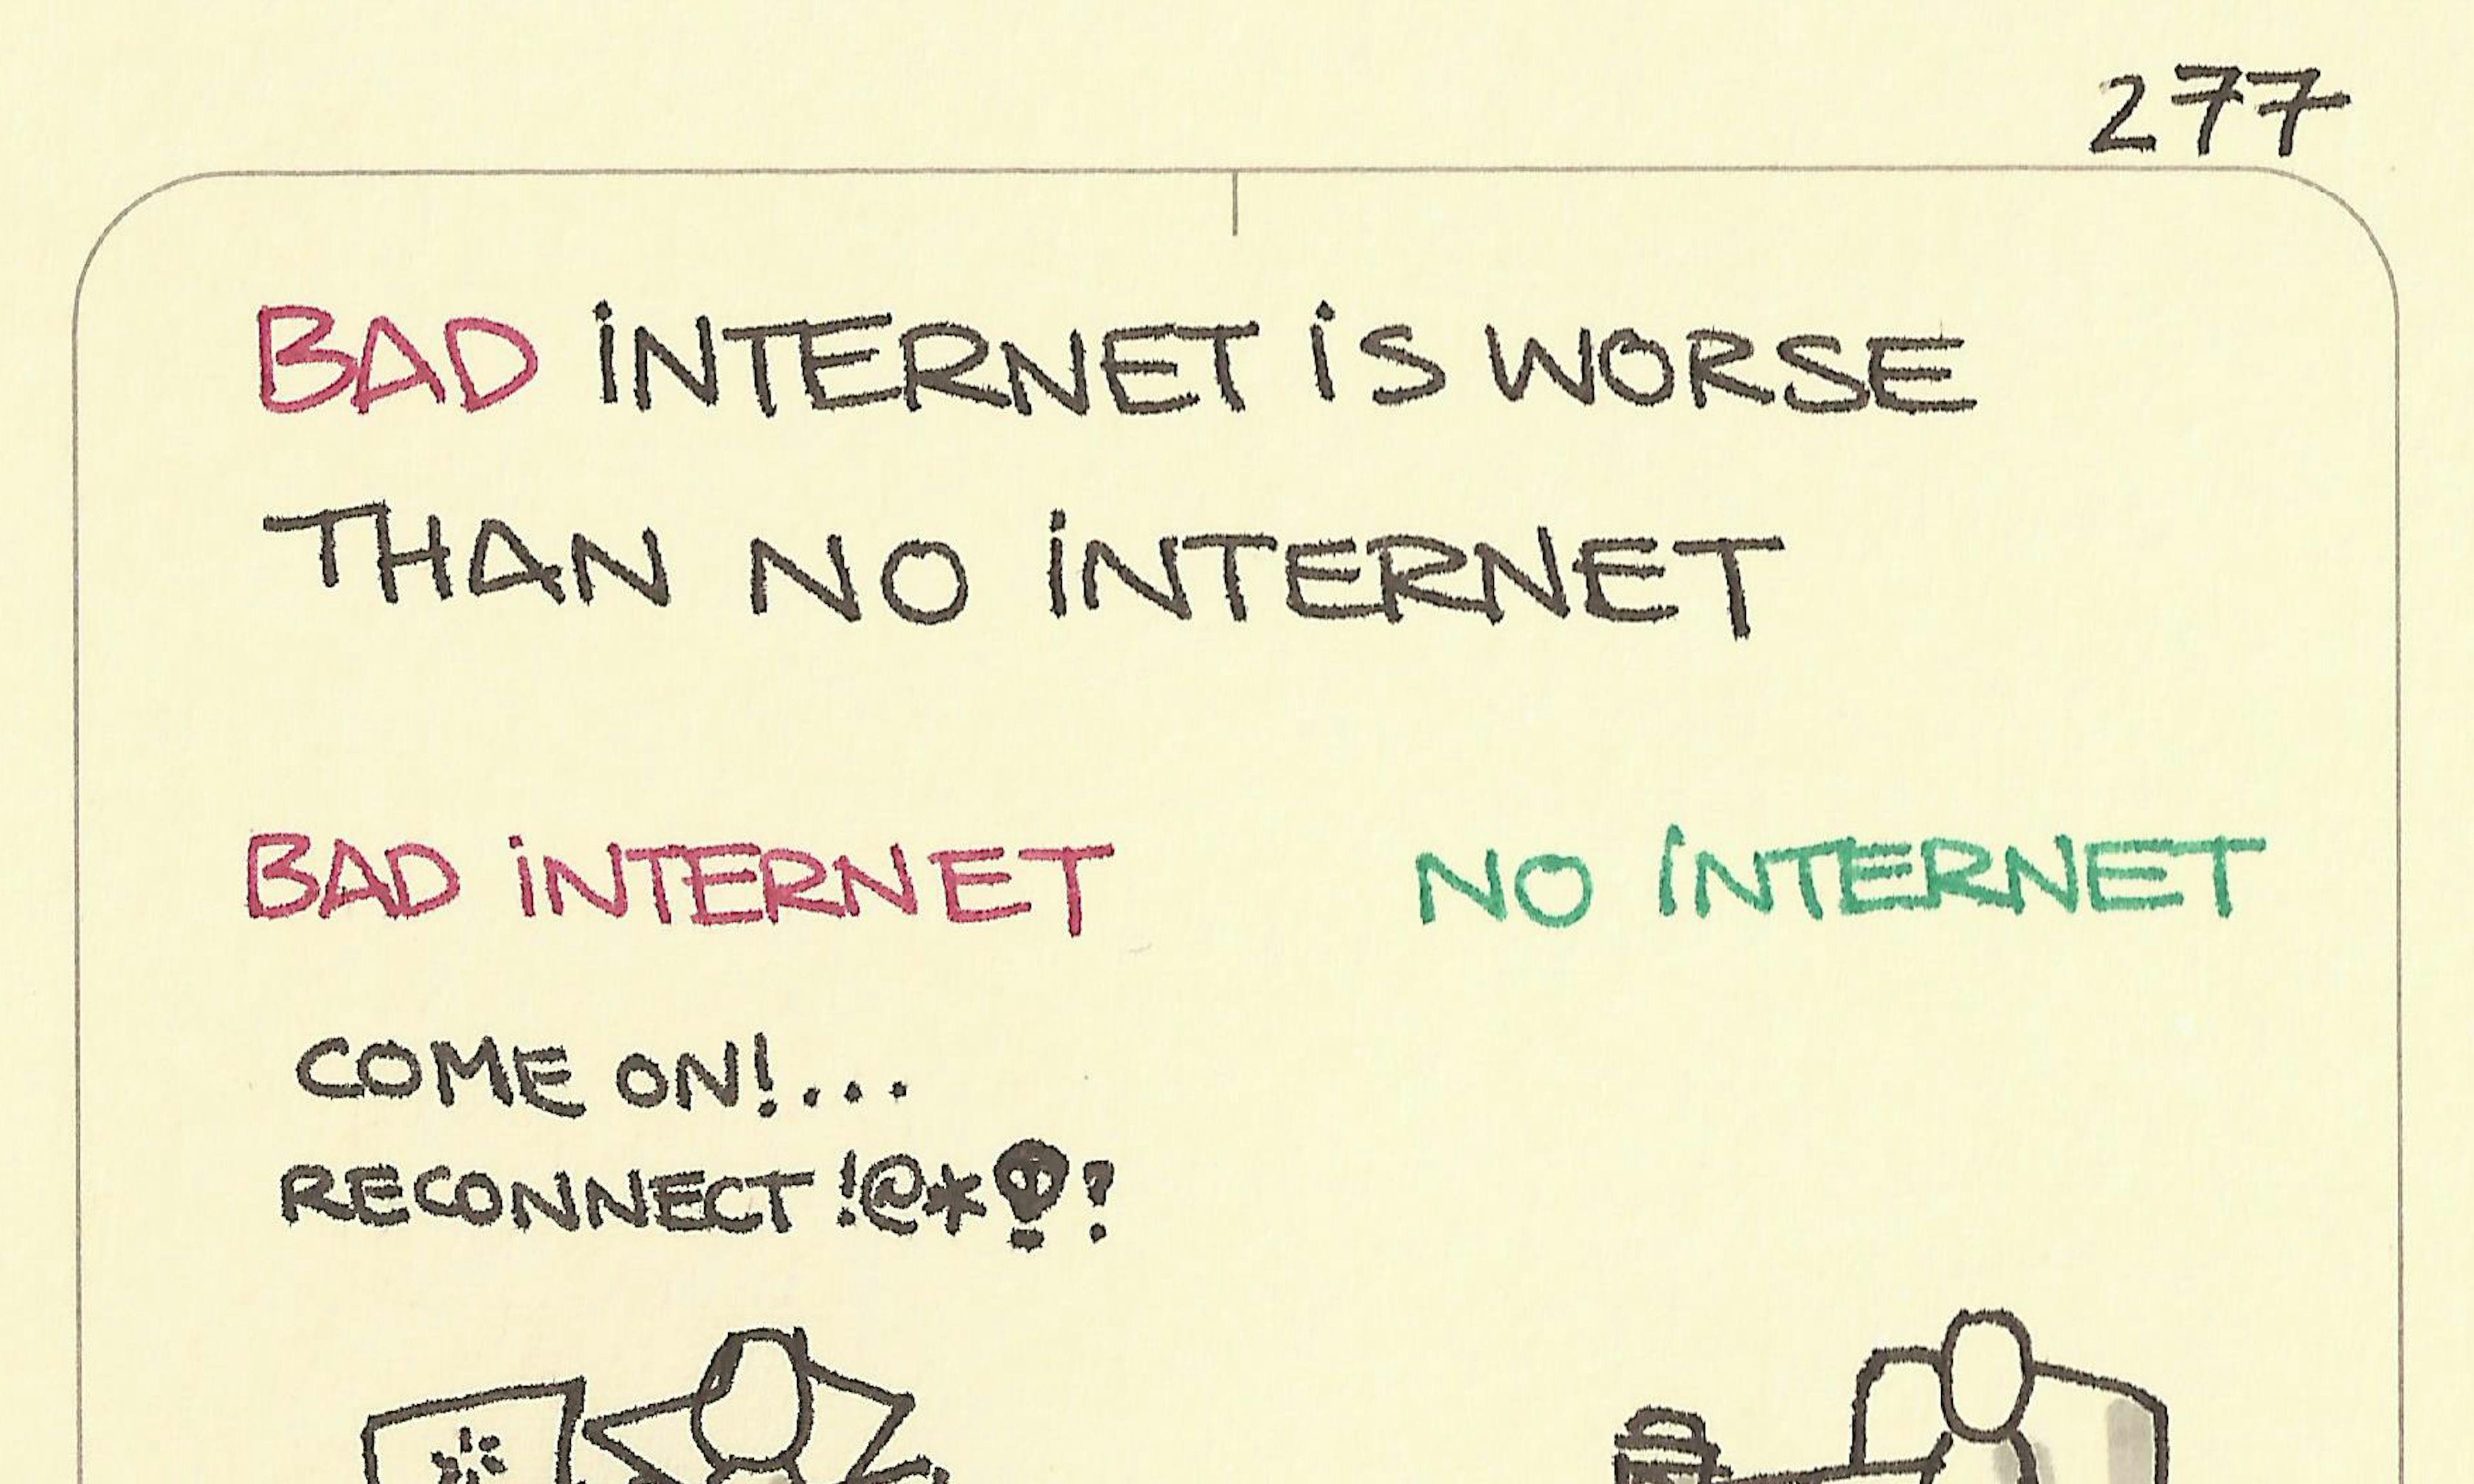 277
BAD INTERNET IS WORSE
THAN NO INTERNET
BAD INTERNET
NO INTERNET
COME ON!...
RECONNECT !@*💀?